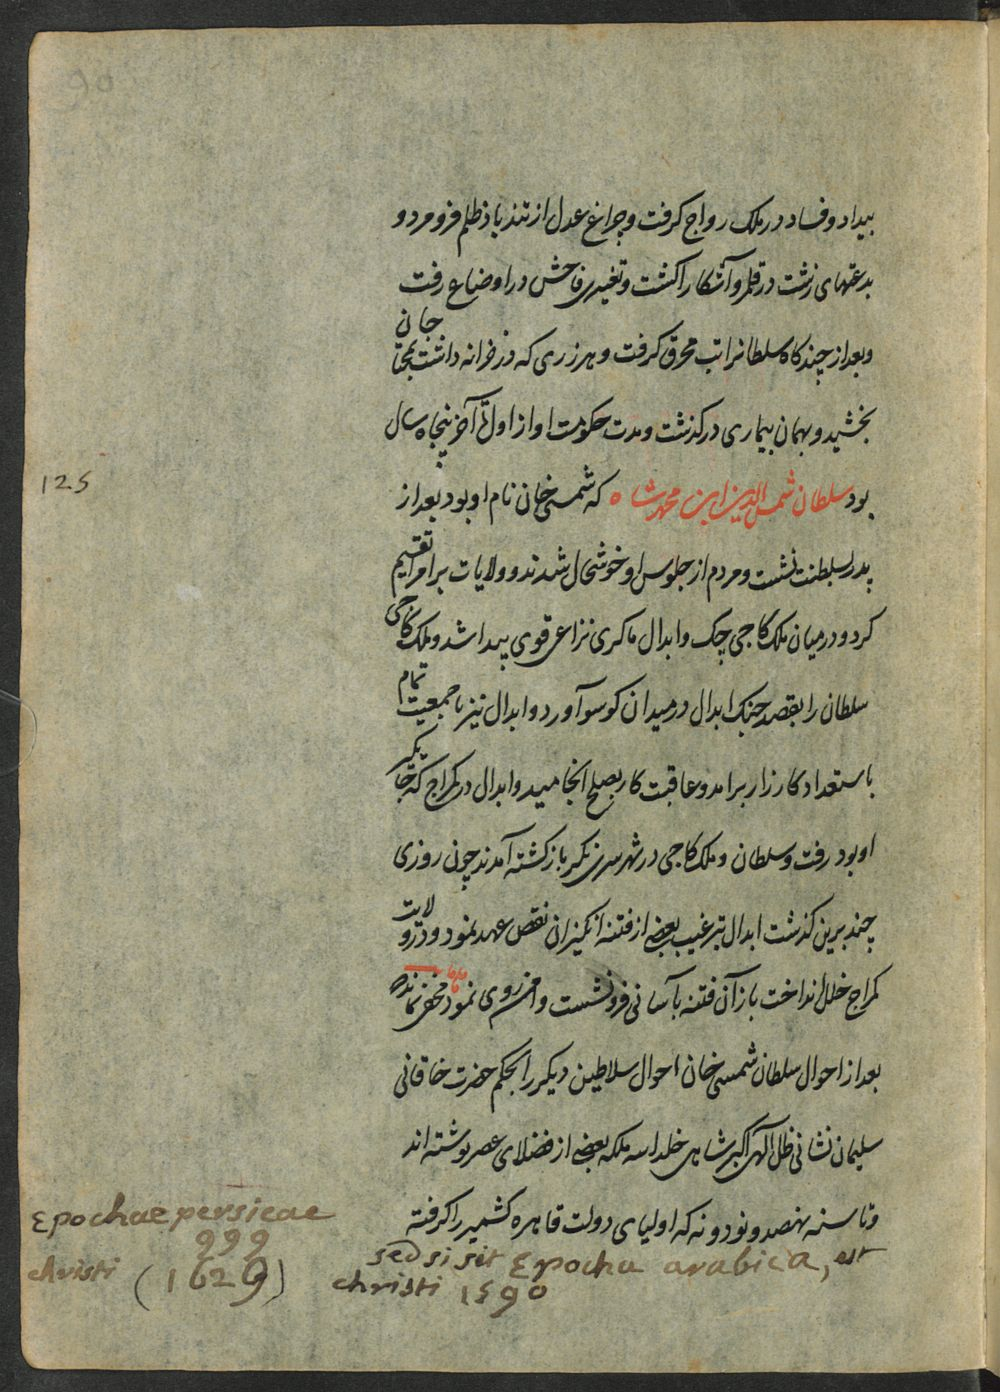 90
بیداد و فساد در ملک رواج گرفت و چراغ عدل از تندباد ظلم فرو مرد و
بدعتهای زشت در قلمرو آشکارا گشت و تغیری فاحش در اوضاع رفت
وبعد از چند گاه سلطانرا تب محرق گرفت و هر زری که در خزانه داشت بمحتاجان
بخشید و بهمان بیماری درگذشت ومدت حکومت او از اول تا آخر پنجاه سال
125
بود سلطان شمس الدین ابن محمد شاه که شمسی خان نام او بود بعد از
پدر بسلطنت نشست و مردم از جلوس او خوشحال شدند و ولایات بر امرا تقسیم
کرد و درمیان ملک کاجی چک و ابدال ماکری نزاعی قوی پیدا شد و ملک کاجی
سلطان را بقصد جنک ابدال در میدان کوسو آورد و ابدال نیز با جمعیت تمام
باستعداد کارزار برامد و عاقبت کار بصلح انجامید و ابدال در کمراج که جاگیر
او بود رفت و سلطان و ملک کاجی در شهر سری نکر بازگشته آمدند چون روزی
چند برین گذشت ابدال بترغیب بعضی از فتنه انگیزان نقض عهد نمود و در ولایت
کمراج خلل انداخت باز آن فتنه بآسانی فرو نشست و امن روی نمود مخفی نماند که
بعد از احوال سلطان شمسی خان احوال سلاطین دیگر را بحکم حضرت خاقانی
سلیمان نشانی ظل الهی اکبر شاهی خلد الله ملکه بعضی از فضلای عصر نوشته اند
و تا سنه نهصد و نود و نه که اولیای دولت قاهره کشمیر را گرفته
Epochae persicae
999
Christi (1629)
sed si sit Epocha arabica, est
christi 1590